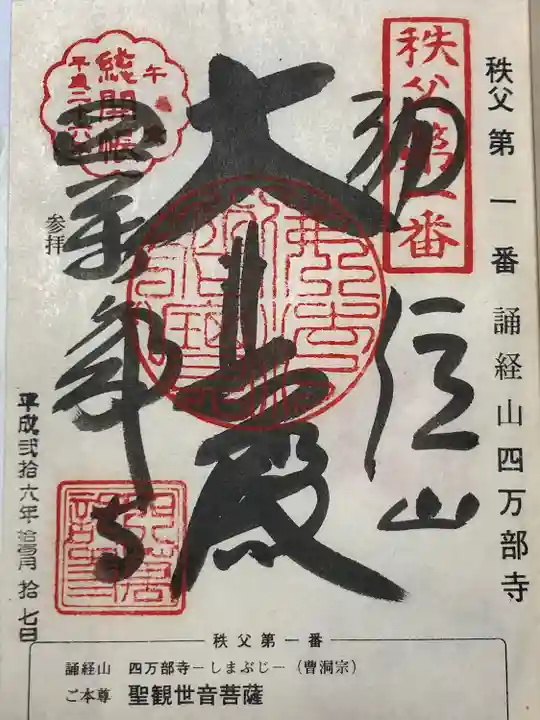 秩父第一番 誦経山四万部寺
秩父第一番
大悲殿
四萬部寺
午歳
総開帳
平成二十六年
参拝
平成弐拾六年拾壱月拾七日
秩父第一番
誦経山 四万部寺－しまぶじ－（曹洞宗）
ご本尊 聖観世音菩薩